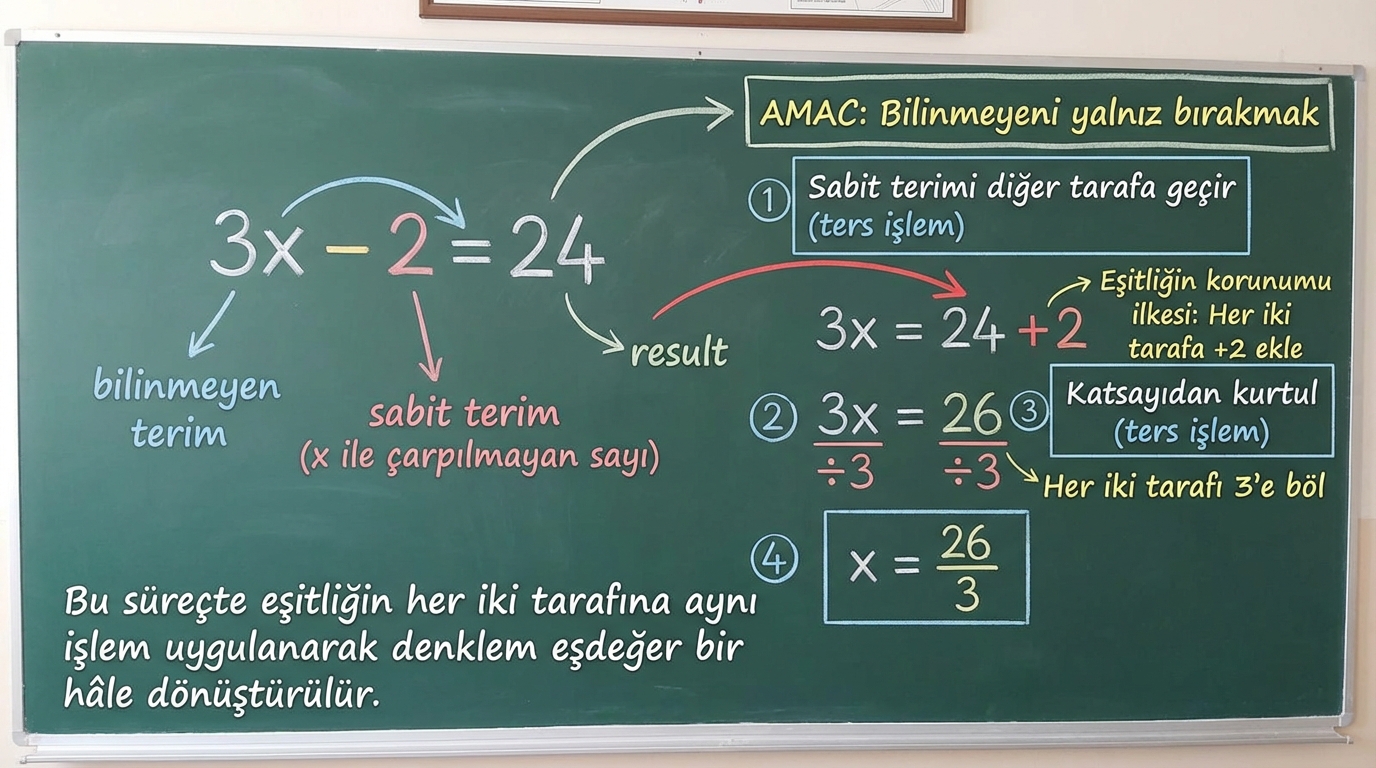 3x − 2 = 24
bilinmeyen
terim
sabit terim
(x ile çarpılmayan sayı)
result
AMAC: Bilinmeyeni yalnız bırakmak
1 Sabit terimi diğer tarafa geçir
(ters işlem)
3x = 24 + 2
Eşitliğin korunumu
ilkesi: Her iki
tarafa +2 ekle
2 3x = 26
÷3 ÷3
3 Katsayıdan kurtul
(ters işlem)
Her iki tarafı 3'e böl
4 x = 26/3
Bu süreçte eşitliğin her iki tarafına aynı
işlem uygulanarak denklem eşdeğer bir
hâle dönüştürülür.